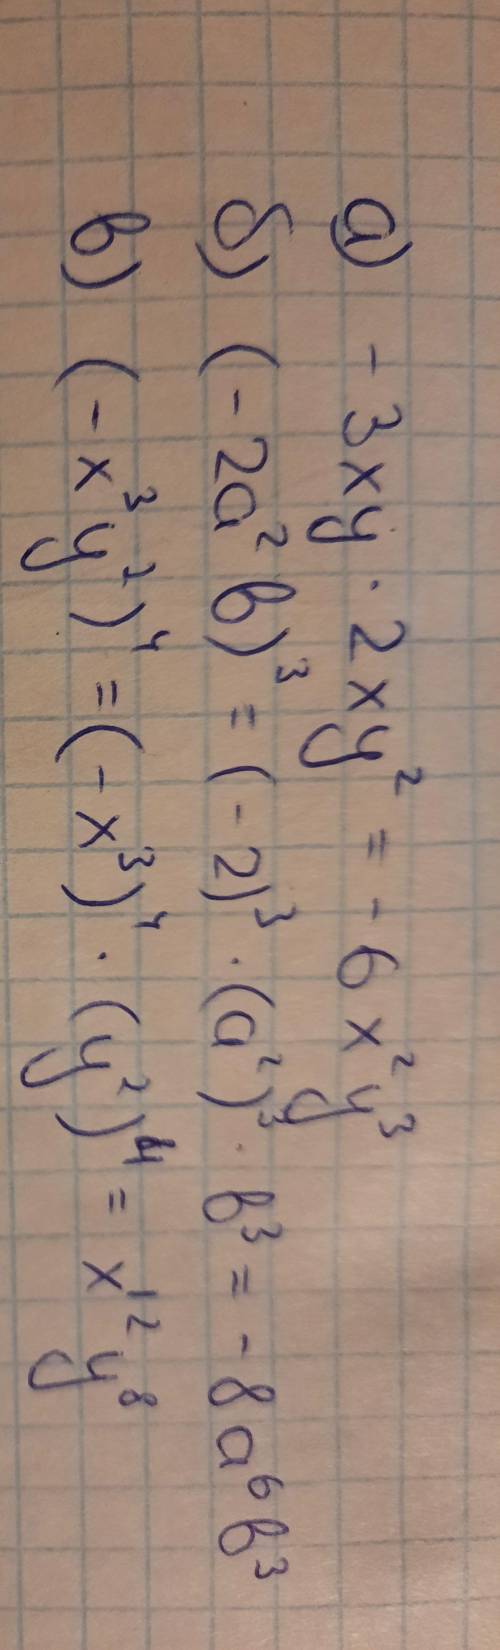 а) - 3xy · 2xy² = - 6x²y³
б) (- 2a²b)³ = (- 2)³ · (a²)³ · b³ = - 8a⁶b³
в) (- x³y²)⁴ = (- x³)⁴ · (y²)⁴ = x¹²y⁸